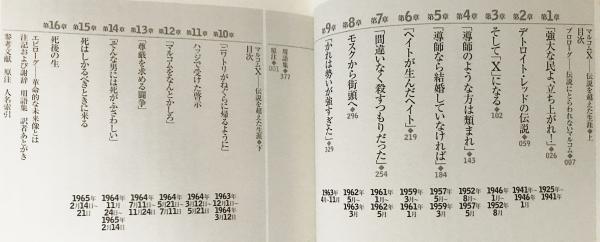 マルコムX―伝説を超えた生涯◆上
目次
プロローグ―伝説にとらわれないマルコム◆007
第1章 「強大な民よ、立ち上がれ！」◆026 1925年~1941年
第2章 デトロイト・レッドの伝説◆059 1941年~1946年1月
第3章 そして「X」になる◆102 1946年1月~1952年8月
第4章 「導師のような方は類まれ」◆143 1952年8月~1957年5月
第5章 「導師なら結婚していなければ」◆184 1957年5月~1959年3月
第6章 「ヘイトが生んだヘイト」◆219 1959年3月~1961年1月
第7章 「間違いなく殺すつもりだった」◆254 1961年1月~1962年5月
第8章 モスクから街頭へ◆296 1962年5月~1963年3月
第9章 「かれは勢いが強すぎた」◆329 1963年4月~11月
用語集◆377
原注◆001
マルコムX―伝説を超えた生涯◆下
目次
第10章 「ニワトリがねぐらに帰るように」 1963年12月1日~1964年3月12日
第11章 ハッジで受けた啓示 1964年3月12日~5月21日
第12章 「マルコムをなんとかしろ」 1964年5月21日~7月11日
第13章 「尊厳を求める闘争」 1964年7月11日~11月24日
第14章 「そんな男には死がふさわしい」 1964年11月24日~1965年2月14日
第15章 死はしかるべきときに来る 1965年2月14日~21日
第16章 死後の生
エピローグ―革命的な未来像とは
注記および謝辞 用語集 訳者あとがき
参考文献 原注 人名索引